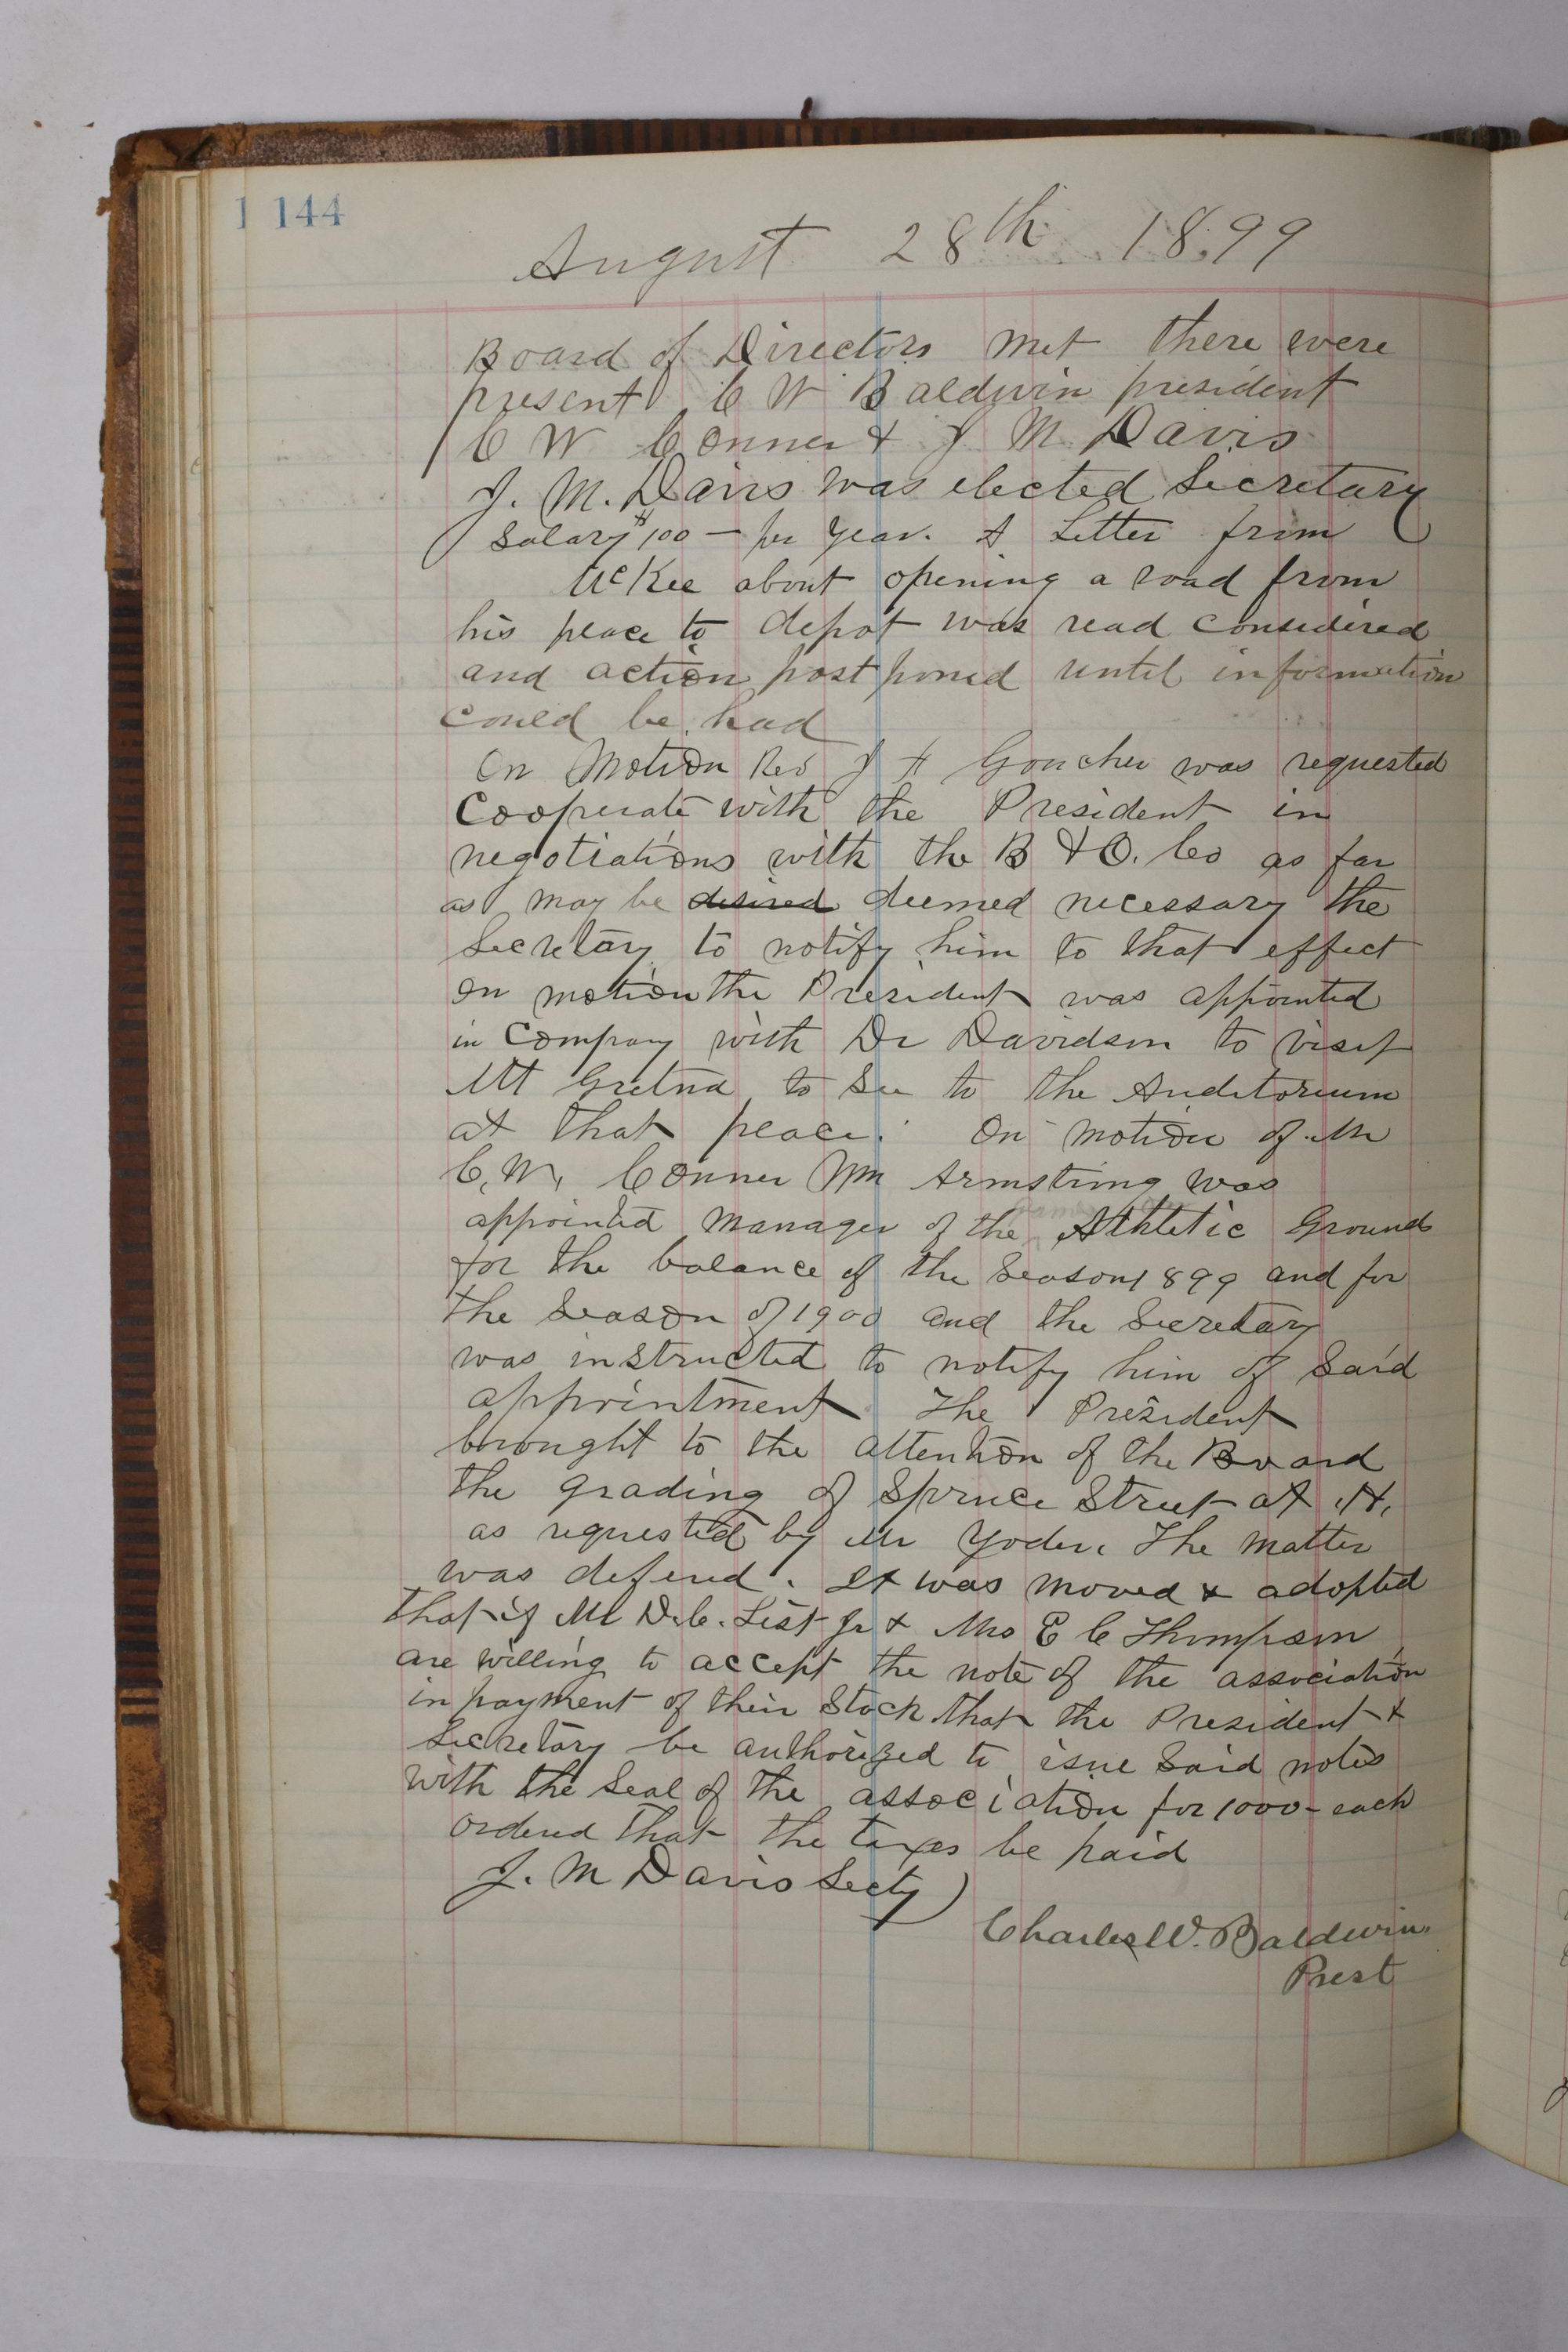 144
August 28th 1899
Board of Directors met there were
present C W Baldwin president
C W Conner & J M Davis
J. M. Davis was elected Secretary
Salary $100 - per year. A Letter from
McKee about opening a road from
his place to depot was read considered
and action postponed until information
could be had
On Motion Rev J F Goucher was requested
Cooperate with the President in
negotiations with the B & O. Co as far
as may be desired deemed necessary the
Secretary to notify him to that effect
on motion the President was appointed
in Company with Dr Davidson to visit
Mt Gretna to See to the Auditorium
at that place. On motion of Mr
C. W. Conner Wm Armstrong was
appointed manager of the Athletic Grounds
for the balance of the Season 1899 and for
the Season of 1900 and the Secretary
was instructed to notify him of Said
appointment The President
brought to the attention of the Board
the grading of Spruce Street at .H.
as requested by Mr Yoder. The matter
was defered. It was moved & adopted
that if Mr D.C. List Jr & Mrs E C Thompson
are willing to accept the note of the association
in payment of their Stock that the President &
Secretary be authorized to isue Said notes
with the Seal of the association for 1000- each
ordered that the taxes be paid
J. M Davis Secty
Charles W. Baldwin.
Prest